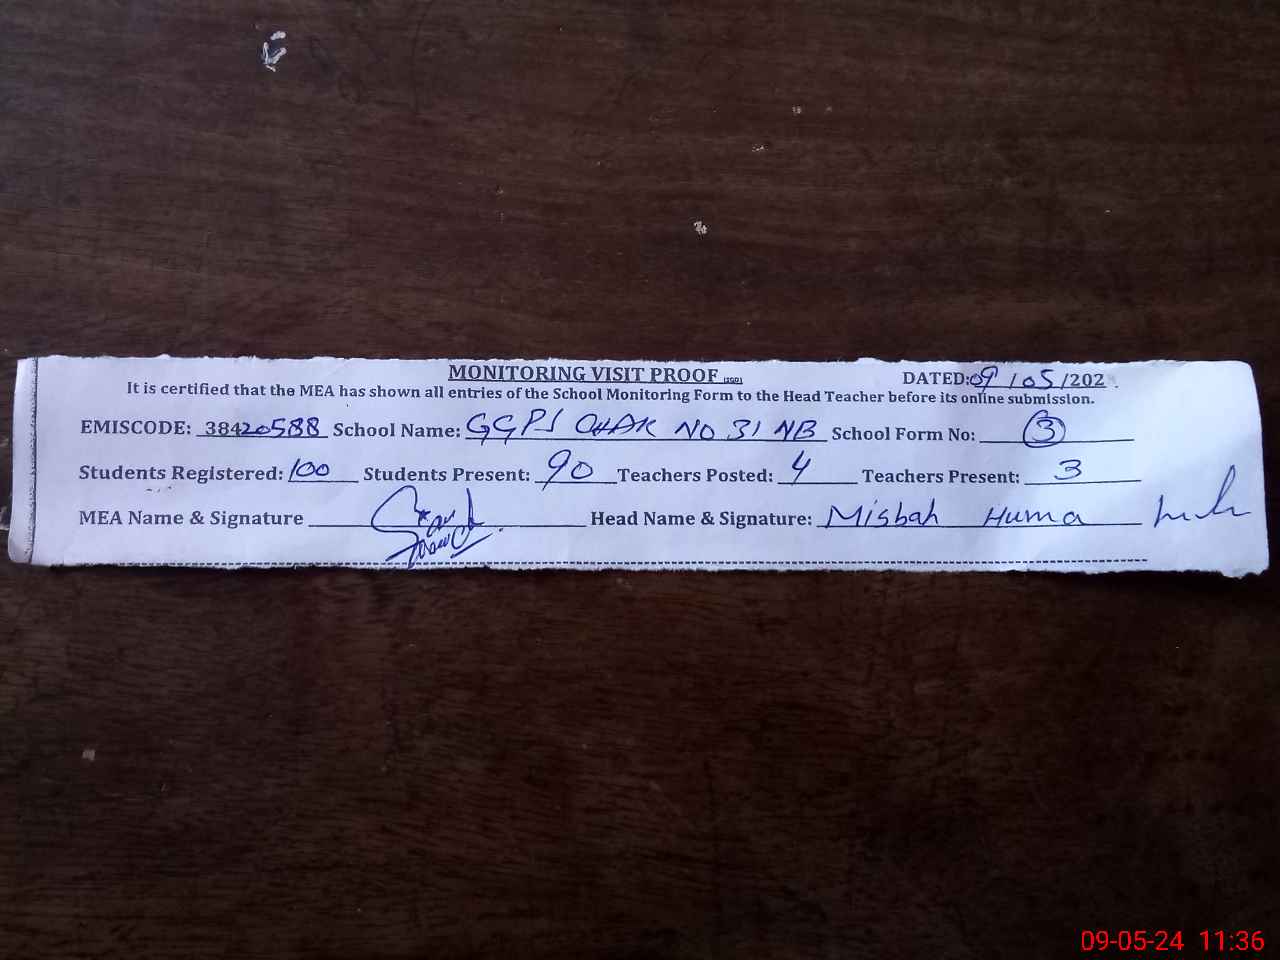 MONITORING VISIT PROOF DATED: 09/05/202
It is certified that the MEA has shown all entries of the School Monitoring Form to the Head Teacher before its online submission.
EMISCODE: 38420588 School Name: GGPS CHAK NO 31 NB School Form No: 3
Students Registered: 100 Students Present: 90 Teachers Posted: 4 Teachers Present: 3
MEA Name & Signature Head Name & Signature: Misbah Huma
09-05-24 11:36